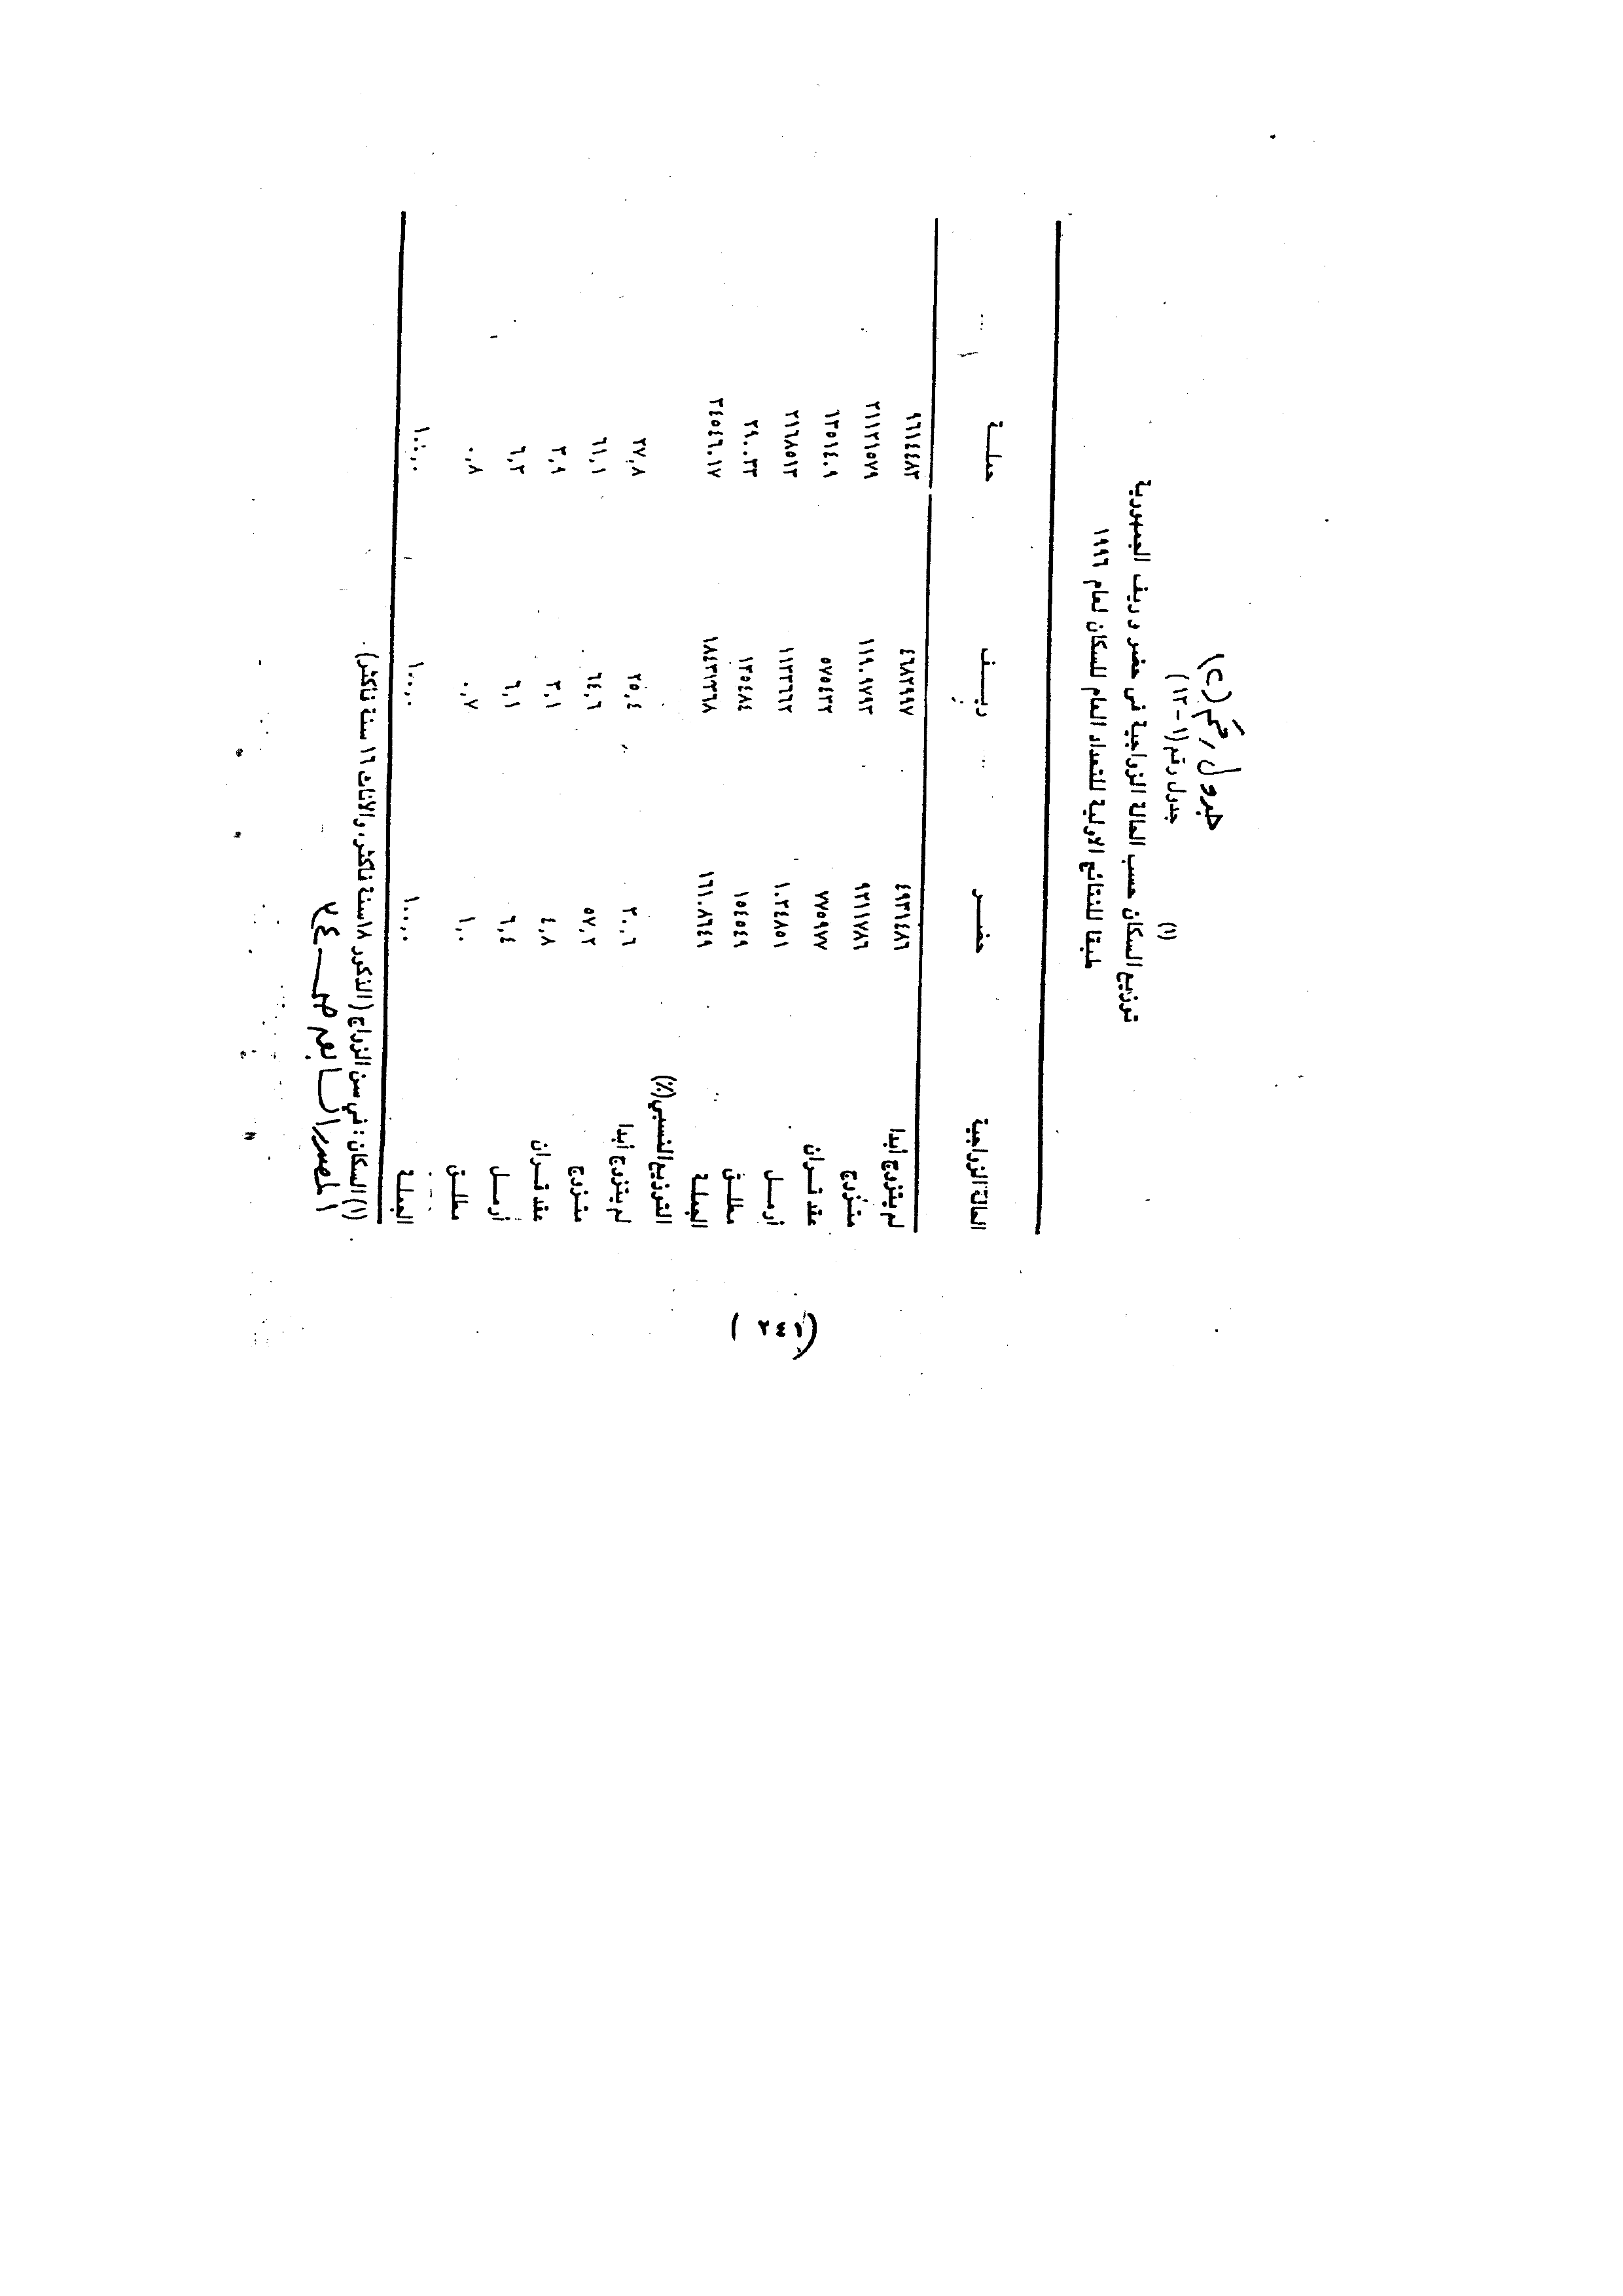 جدول رقم (٢)
جدول رقم (١-١٢)
(١)
توزيع السكان حسب الحالة الزواجية فى حضر وريف الجمهورية
طبقا للنتائج الاولية للتعداد العام للسكان لعام ١٩٩٦
الحالة الزواجية حضــر ريــف جملــة
لم يتزوج أبدا ٤٩٣١٤٨٦ ٤٦٨٢٩٩٧ ٩٦١٤٤٨٣
متـزوج ٩٢١١٧٨٦ ١١٩٠٩٧٩٣ ٢١١٢١٥٧٩
عقد قـران ٧٧٥٩٧٧ ٥٧٥٤٣٢ ١٣٥١٤٠٩
أرمــل ١٠٣٤٨٥١ ١١٣٣٦٦٢ ٢١٦٨٥١٣
مطلــق ١٥٤٥٤٩ ١٣٥٤٨٤ ٢٩٠٠٣٣
الجملـة ١٦١٠٨٦٤٩ ١٨٤٣٧٣٦٨ ٣٤٥٤٦٠١٧
التوزيع النسبي (٪)
لم يتزوج أبدا ٣٠,٦ ٢٥,٤ ٢٧,٨
متـزوج ٥٧,٢ ٦٤,٦ ٦١,١
عقد قـران ٤,٨ ٣,١ ٣,٩
أرمــل ٦,٤ ٦,١ ٦,٣
مطلــق ١,٠ ٠,٧ ٠,٨
الجملـة ١٠٠,٠ ١٠٠,٠ ١٠٠,٠
(١) السكان : في سن الزواج (الذكور ١٨ سنة فاكثر، والاناث ١٦ سنة فاكثر).
المصدر السابق صـ ٢٤
(٢٤٢)